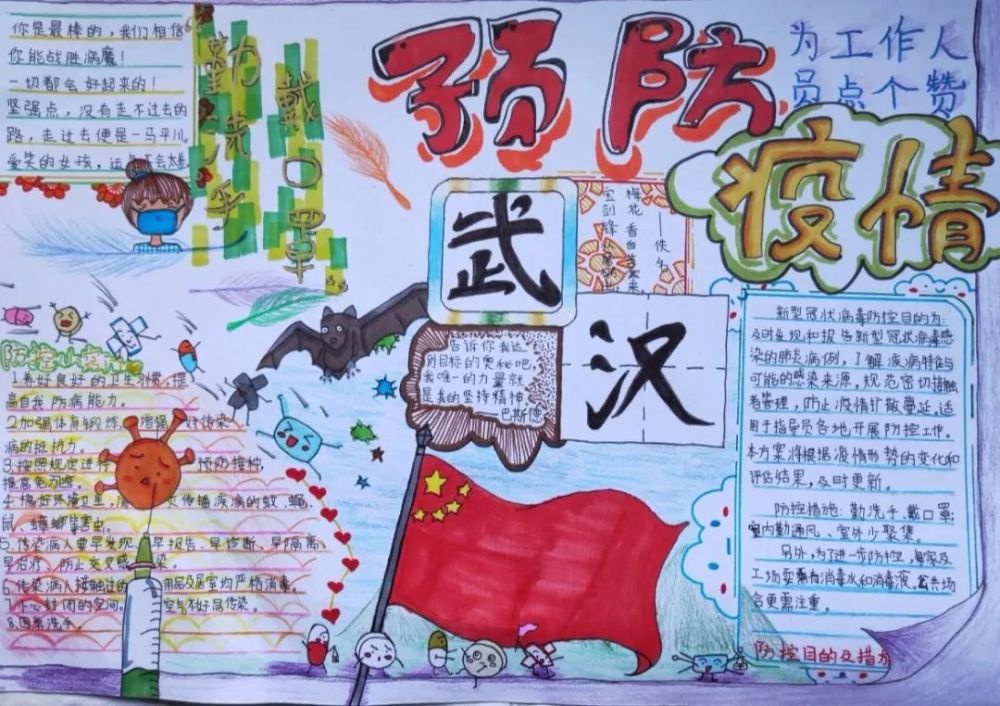 你是最棒的，我们相信
你能战胜病魔！
一切都会好起来的！
坚强点，没有走不过去的
路，走过去便是一马平川。
爱笑的女孩，运气不会太差
勤洗手
戴口罩
预防
疫情
为工作人
员点个赞
武
汉
宝剑锋
梅花香自苦寒来
——佚名
告诉你我达
到目标的奥秘吧，
我唯一的力量就
是我的坚持精神。
巴斯德
防控小
1.养好良好的卫生习惯，提
高自我防病能力。
2.加强体育锻炼，增强 好传染
病的抵抗力。
3.按照规定进行 预防接种，
提高免疫
4.搞好环境卫生，消 灭传播疾病的蚊、蝇、
鼠、蟑螂等害虫。
5.传染病人要早发现、早报告、早诊断、早隔离、
早治疗、防止交叉感 染。
6.传染病人接触过的 用品及居室均严格消毒。
7. 心封闭的空间， 空气不好易传染。
8. 常洗手。
新型冠状病毒防控目的为：
及时发现和报告新型冠状病毒感
染的肺炎病例，了解疾病特征与
可能的感染来源，规范密切接触
者管理，防止疫情扩散蔓延。适
用于指导员各地开展防控工作。
本方案将根据疫情形势的变化和
评估结果，及时更新。
防控措施：勤洗手、戴口罩；
室内勤通风、室外少聚集。
另外，为了进一步防控，海家及
工场要 有消毒水和消毒液。公共场
合更需注重。
防控目的及措方